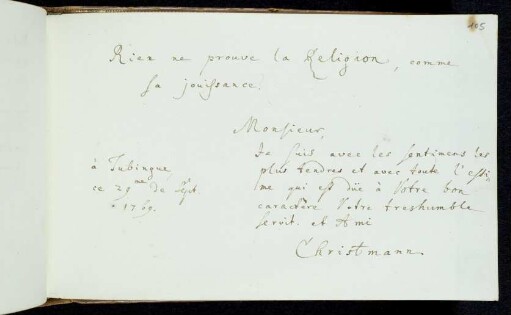 105
Rien ne prouve la Religion, comme
sa jouissance.
Monsieur,
Je suis avec les sentimens les
plus tendres et avec toute l'esti-
me qui est düe à Votre bon
caractère Votre treshumble
servit. et Ami
Christmann.
à Tubingue
ce 29me de Sept.
1769.